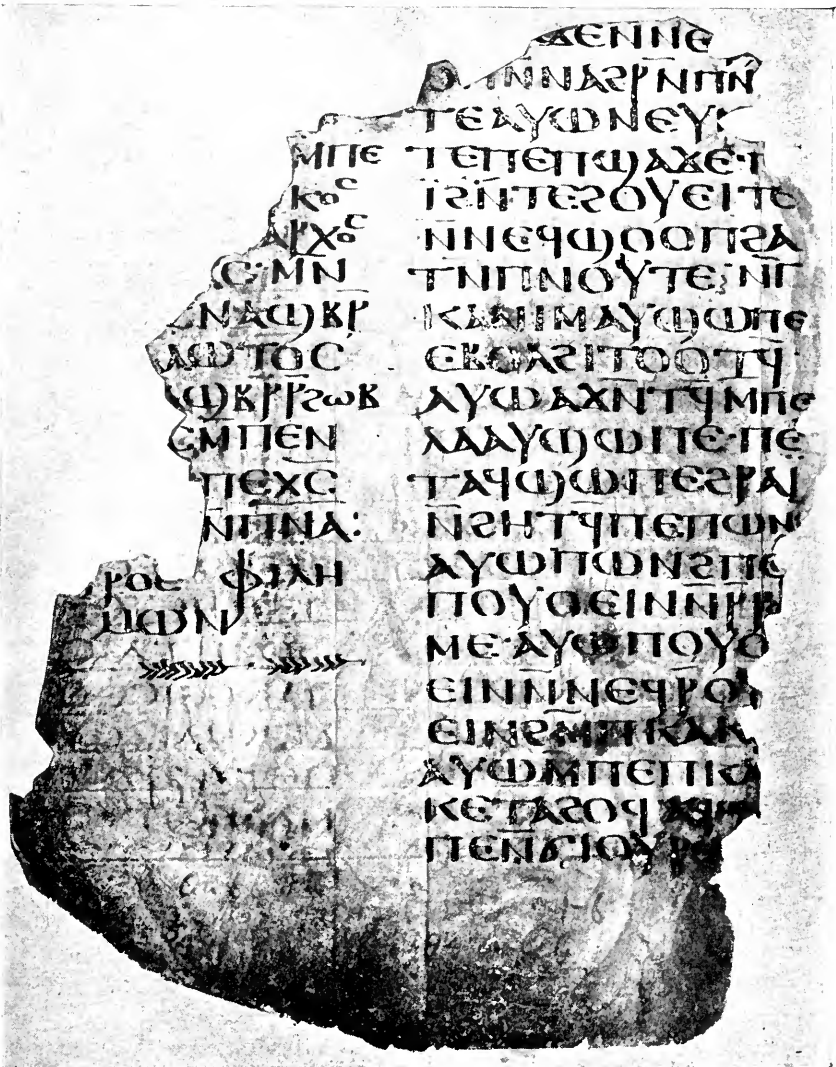 ⲙⲡⲉ
ⲕⲟⲥ
ⲁⲣⲭⲟⲥ
ⲥ·ⲙⲛ
ⲛⲁϣⲃⲣ
ⲁⲱⲧⲟⲥ
ϣⲃⲣⲣϩⲱⲃ
ⲥⲙⲡⲉⲛ
ⲡⲉⲭⲥ̅
ⲙ̅ⲡⲛ̅ⲁ̅:
ⲣⲟⲥ ⲫⲓⲗⲏ
ⲙⲱⲛ
ⲇⲉⲛⲛⲉ
ⲛⲛⲁϩⲣⲛ̅ⲡⲛ
ⲧⲉⲁⲩⲱⲛⲉⲩ
ⲧⲉⲡⲉⲡϣⲁϫⲉ·
ⲓϩⲛ̅ⲧⲉϩⲟⲩⲉⲓⲧⲉ
ⲛⲛⲉϥϣⲟⲟⲡϩⲁ
ⲧⲛ̅ⲡⲛⲟⲩⲧⲉ: ⲛⲅ
ⲕⲁⲛⲓⲙⲁⲩϣⲱⲡⲉ
ⲉⲃⲟⲗϩⲓⲧⲟⲟⲧϥ̅
ⲁⲩⲱⲁϫⲛ̅ⲧϥ̅ⲙⲡⲉ
ⲗⲁⲁⲩϣⲱⲡⲉ·ⲡⲉ
ⲧⲁϥϣⲱⲡⲉϩⲣⲁⲓ
ⲛ̅ϩⲏⲧϥ̅ⲡⲉⲡⲱⲛ
ⲁⲩⲱⲡⲱⲛϩ̅ⲡⲉ
ⲡⲟⲩⲟⲉⲓⲛⲛ̅ⲣⲣ
ⲙⲉ·ⲁⲩⲱⲡⲟⲩⲟ
ⲉⲓⲛⲛ̅ⲛⲉϥⲣⲟⲩ
ⲉⲓⲛϩⲙ̅ⲡⲕⲁⲕ
ⲁⲩⲱⲙ̅ⲡⲉⲡⲕⲁ
ⲕⲉⲧⲁϩⲟϥ
ⲡⲉⲛ̅ϭⲓⲟⲩⲣⲱ